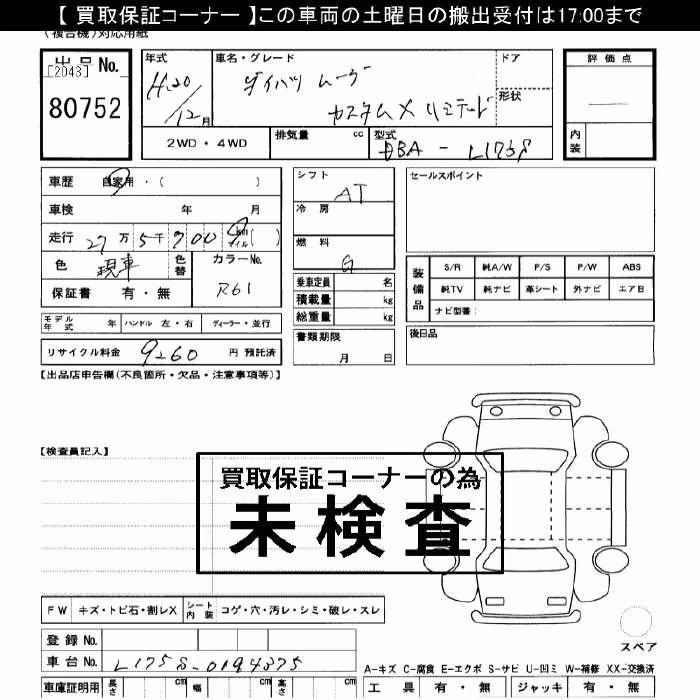 【 買取保証コーナー 】この車両の土曜日の搬出受付は17:00まで
(複合機)対応用紙
出品 No.
[2043]
80752
年式
H.20/12月
車名・グレード
ダイハツ ムーヴ
カスタム X リミテード
ドア
形状
評価点
内装
2WD・4WD
排気量 cc
型式
DBA - L175S
車歴 自家用・( )
車検 年 月
走行 27万5千900 km マイル ( )
色 現車
色替
カラーNo.
R61
保証書 有・無
シフト AT
冷房
燃料 G
乗車定員 名
積載量 kg
総重量 kg
セールスポイント
装備品
S/R 純A/W P/S P/W ABS
純TV 純ナビ 革シート 外ナビ エアB
ナビ型番:
モデル年式 年 ハンドル 左・右 ディーラー・並行
書類期限
月 日
後日品
リサイクル料金 9260 円 預託済
【出品店申告欄(不良箇所・欠品・注意事項等)】
【検査員記入】
買取保証コーナーの為
未検査
FW キズ・トビ石・割レX シート内装 コゲ・穴・汚レ・シミ・破レ・スレ
スペア
登録 No.
車台 No. L175S-0194375
A-キズ C-腐食 E-エクボ S-サビ U-凹ミ W-補修 XX-交換済
車庫証明用 長さ cm 幅 cm 高さ cm
工具 有・無 ジャッキ 有・無